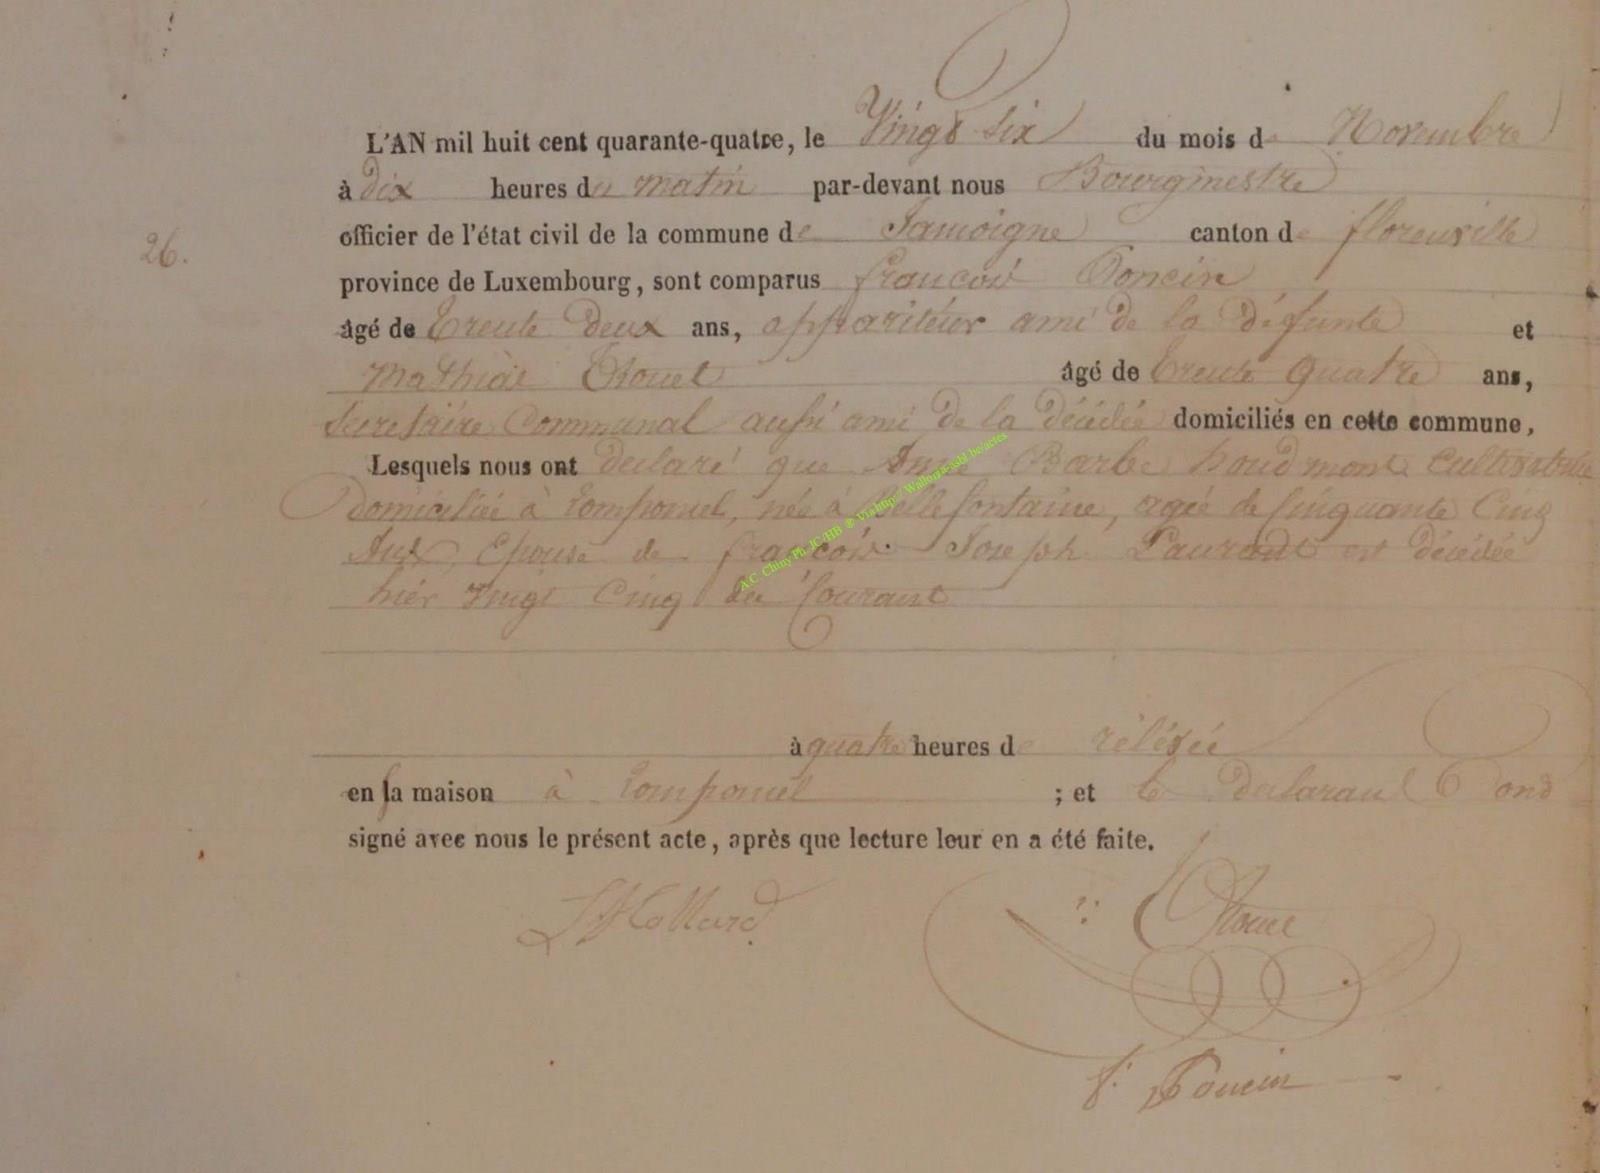 L'AN mil huit cent quarante-quatre, le Vingt Six du mois de Novembre
à dix heures du matin par-devant nous Bourgmestre
officier de l'état civil de la commune de Jamoigne canton de florenville
26.
province de Luxembourg, sont comparus françois Poncin
âgé de trente deux ans, appariteur ami de la défunte et
Mathias âgé de trente quatre ans,
Secretaire Communal aussi ami de la décédée domiciliés en cette commune,
Lesquels nous ont declaré que Anne Barbe houdmont Cultivatrice
Domiciliée à romponcel, née à Bellefontaine, agée de Cinquante Cinq
Ans, Epouse de françois Joseph est décédée
hier vingt Cinq du Courant
à quatre heures de rélévée
en sa maison à romponcel ; et le declarant ond
signé avec nous le présent acte, après que lecture leur en a été faite.
f. Poncin
A.C. Chiny-Ph. JC/HB ® Via http:// Wallonia-asbl.be/actes